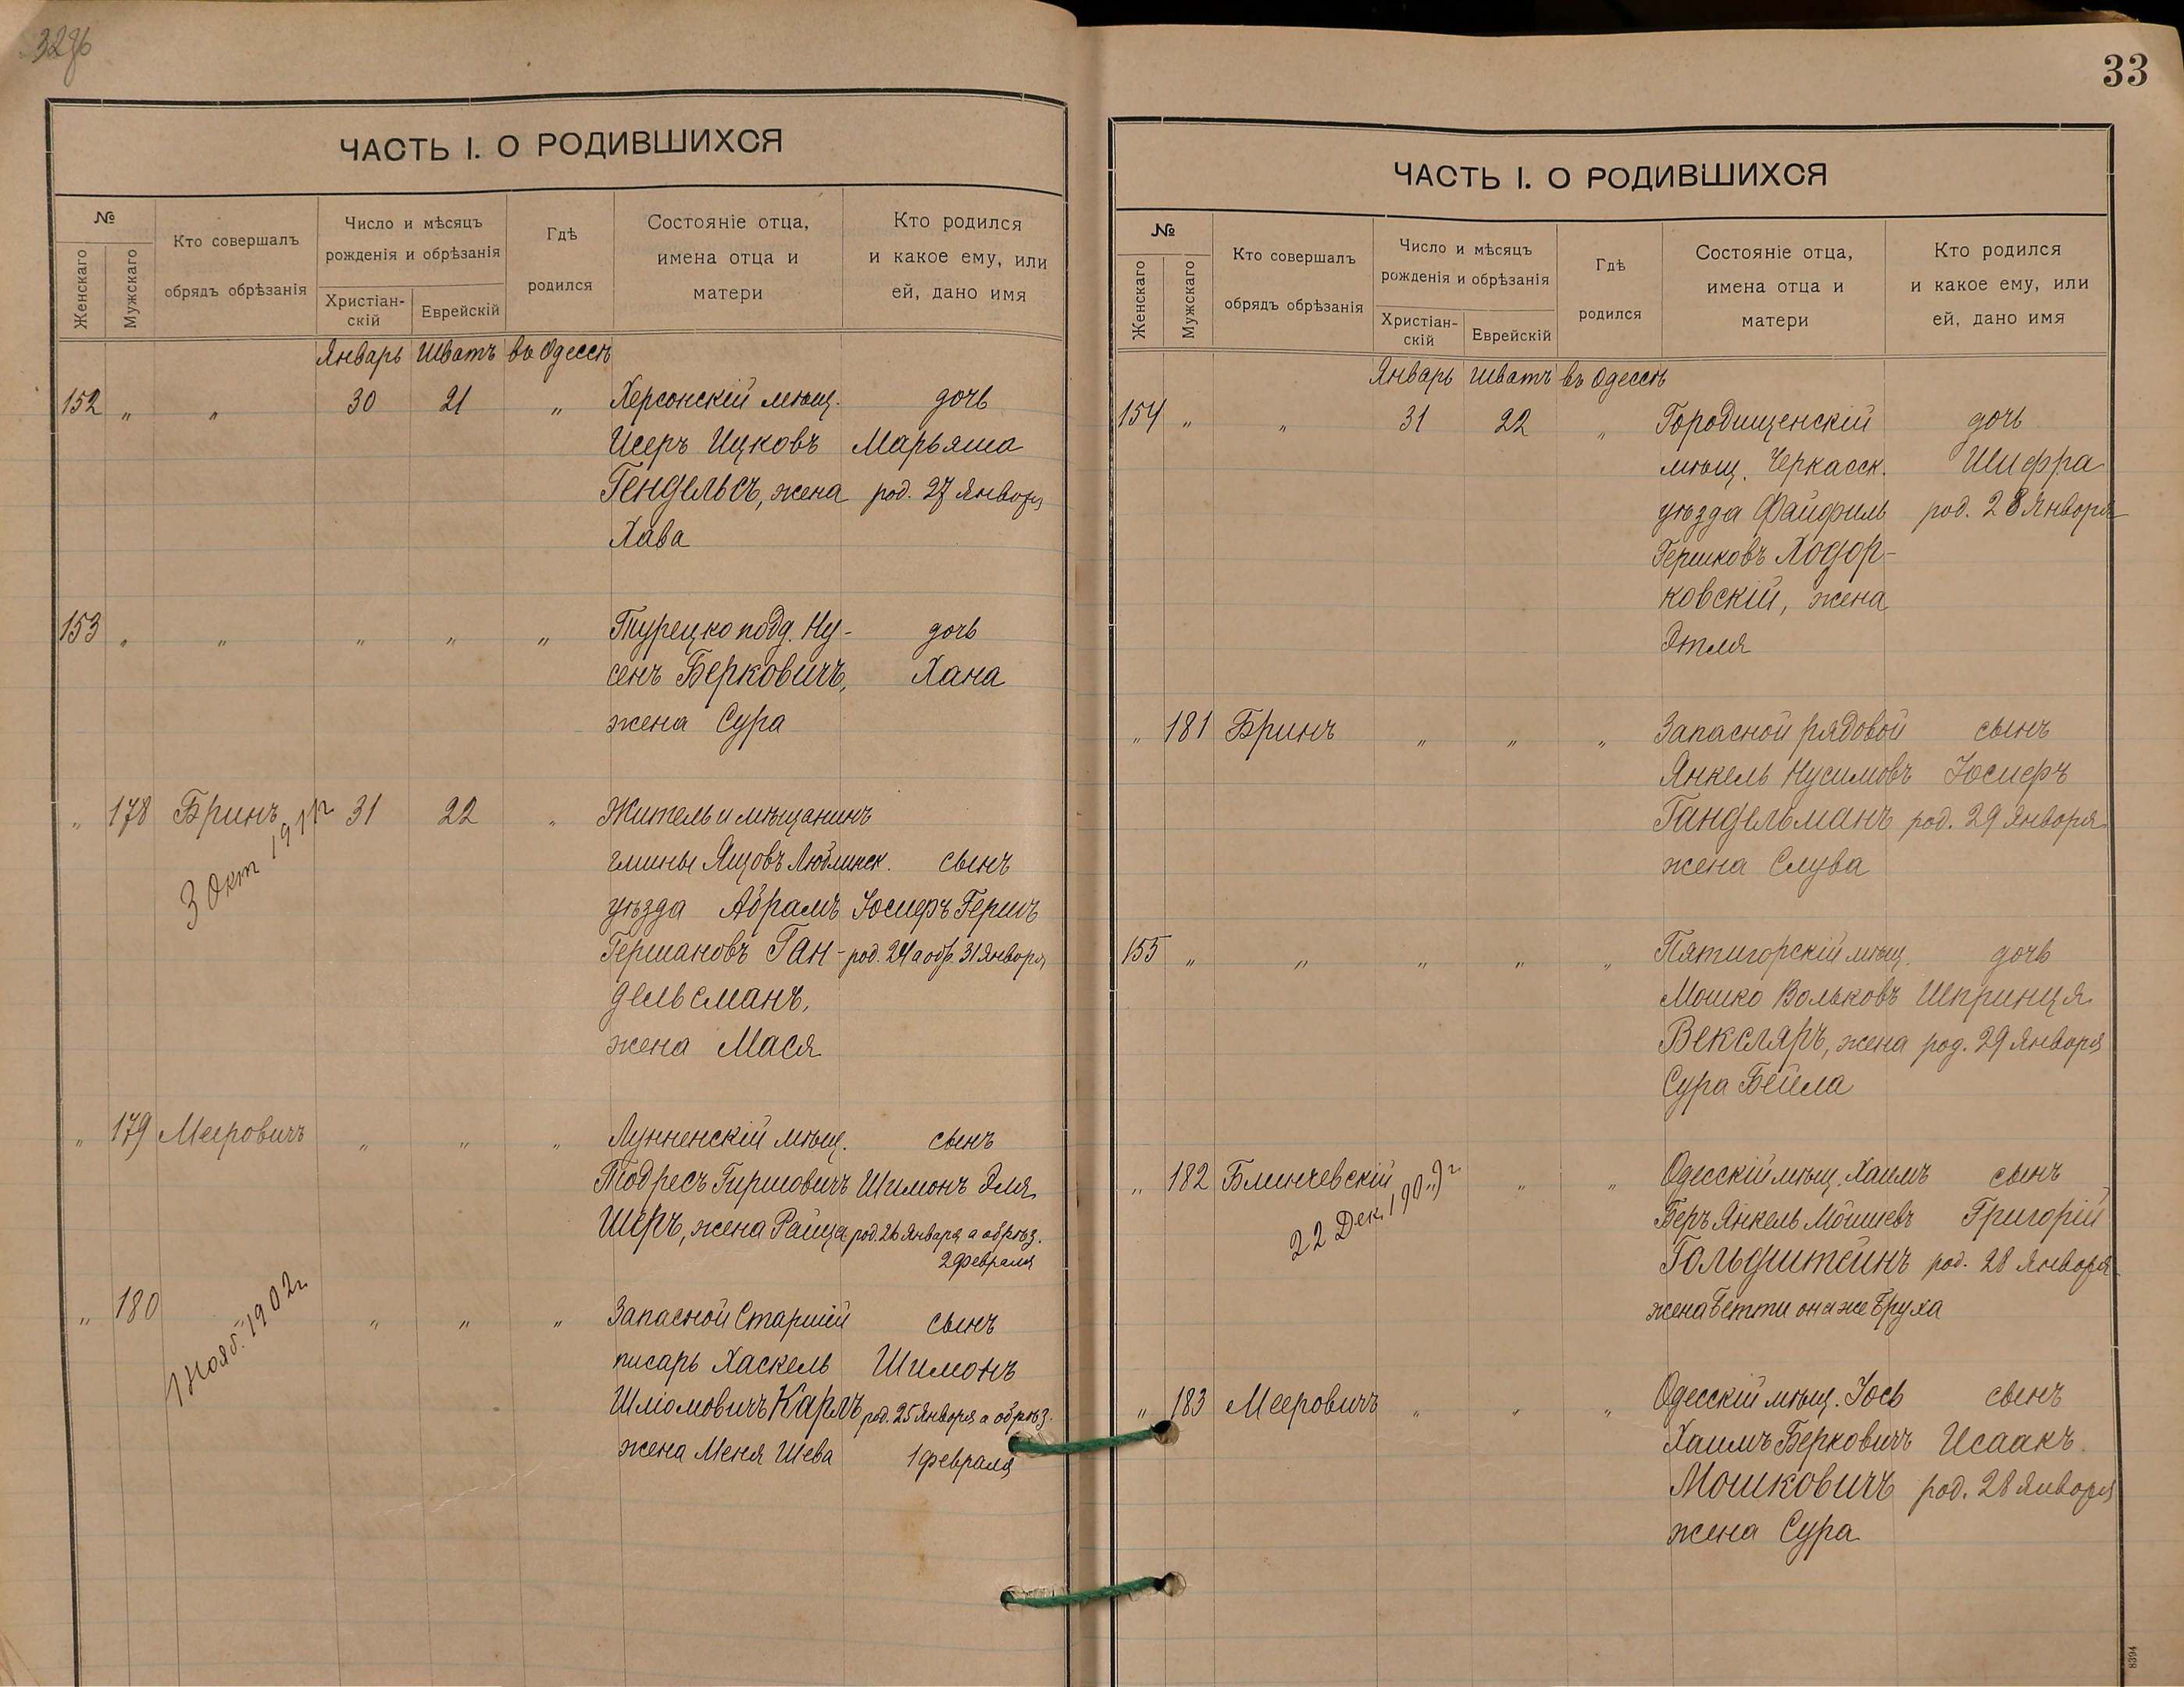 ЧАСТЬ I. О РОДИВШИХСЯ
№
Женскаго
Мужскаго
Кто совершалъ
обрядъ обрѣзанія
Число и мѣсяцъ
рожденія и обрѣзанія
Христіан-
скій
Еврейскій
Гдѣ
родился
Состояніе отца,
имена отца и
матери
Кто родился
и какое ему, или
ей, дано имя
Январь Шватъ въ Одессѣ
152 „ „ 30 21 „ Херсонскій мѣщ. дочь
Исеръ Ицковъ Марьяша
Гендельсъ, жена род. 27 Января
Хава
153 „ „ „ „ „ Турецко подд. Ну- дочь
сенъ Берковичъ, Хана
жена Сура
„ 178 Бринъ 31 22 „ Житель и мѣщанинъ
3 Окт 1911г
гмины Ящовъ Люблинск. сынъ
уѣзда Абрамъ Іосифъ Гершъ
Гершановъ Ган- род. 24 а обр. 31 Января
дельсманъ,
жена Мася
„ 179 Мееровичъ „ „ „ Лунненскій мѣщ. сынъ
Тодресъ Гиршовичъ Шимонъ Эля
Шеръ, жена Райца род. 26 Января а обрѣз.
2 февраля
„ 180 „ „ „ „ Запасной Старшій сынъ
1 Нояб. 1902г
писарь Хаскель Шимонъ
Шліомовичъ Карлъ род. 25 Января а обрѣз.
жена Меня Шева 1 февраля
33
ЧАСТЬ I. О РОДИВШИХСЯ
№
Женскаго
Мужскаго
Кто совершалъ
обрядъ обрѣзанія
Число и мѣсяцъ
рожденія и обрѣзанія
Христіан-
скій
Еврейскій
Гдѣ
родился
Состояніе отца,
имена отца и
матери
Кто родился
и какое ему, или
ей, дано имя
Январь Шватъ въ Одессѣ
154 „ „ 31 22 „ Городищенскій дочь
мѣщ. Черкасск. Шифра
уѣзда Файфиль род. 28 Января
Гершковъ Ходор-
ковскій, жена
Этля
„ 181 Бринъ „ „ „ Запасной рядовой сынъ
Янкель Нусимовъ Іосифъ
Гандельманъ род. 29 Января
жена Слува
155 „ „ „ „ „ Пятигорскій мѣщ. дочь
Мошко Вольковъ Шпринця
Векслярь, жена род. 29 Января
Сура Бейла
„ 182 Блинчевскій „ „ Одесскій мѣщ. Хаимъ сынъ
22 Дек.
Беръ Янкель Мошиевъ Григорій
Гольдштейнъ род. 28 Января
жена Бетти она же Бруха
„ 183 Мееровичъ „ „ „ Одесскій мѣщ. Іось сынъ
Хаимъ Берковичъ Исаакъ
Мошковичъ род. 28 Января
жена Сура
8394